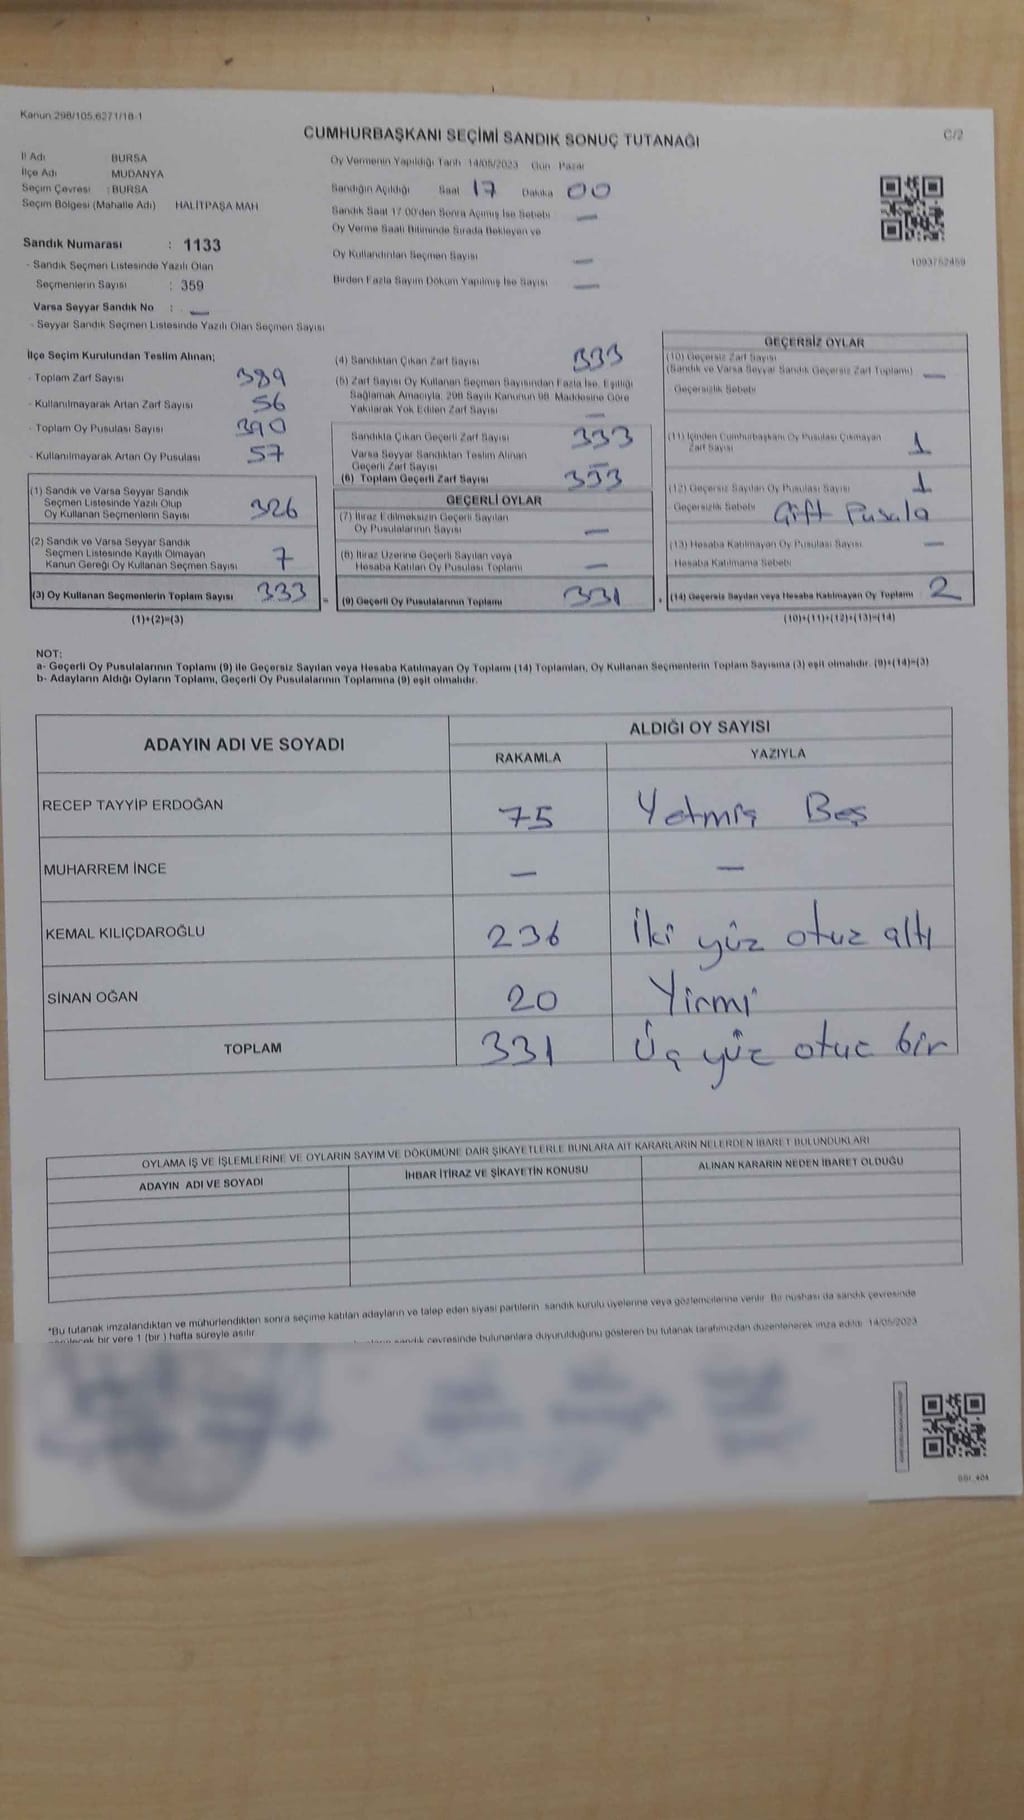 Kanun 298/105,6271/18-1
C/2
CUMHURBAŞKANI SEÇİMİ SANDIK SONUÇ TUTANAĞI
İl Adı BURSA
İlçe Adı MUDANYA
Seçim Çevresi : BURSA
Seçim Bölgesi (Mahalle Adı) HALİTPAŞA MAH
Sandık Numarası : 1133
- Sandık Seçmen Listesinde Yazılı Olan
Seçmenlerin Sayısı : 359
Varsa Seyyar Sandık No : —
- Seyyar Sandık Seçmen Listesinde Yazılı Olan Seçmen Sayısı
Oy Vermenin Yapıldığı Tarih 14/05/2023 Gün Pazar
Sandığın Açıldığı Saat 17 Dakika 00
Sandık Saat 17.00'den Sonra Açılmış İse Sebebi —
Oy Verme Saati Bitiminde Sırada Bekleyen ve
Oy Kullandırılan Seçmen Sayısı —
Birden Fazla Sayım Döküm Yapılmış İse Sayısı —
1093752459
İlçe Seçim Kurulundan Teslim Alınan;
- Toplam Zarf Sayısı 389
- Kullanılmayarak Artan Zarf Sayısı 56
- Toplam Oy Pusulası Sayısı 390
- Kullanılmayarak Artan Oy Pusulası 57
(1) Sandık ve Varsa Seyyar Sandık
Seçmen Listesinde Yazılı Olup
Oy Kullanan Seçmenlerin Sayısı 326
(2) Sandık ve Varsa Seyyar Sandık
Seçmen Listesinde Kayıtlı Olmayan
Kanun Gereği Oy Kullanan Seçmen Sayısı 7
(3) Oy Kullanan Seçmenlerin Toplam Sayısı 333 =
(1)+(2)=(3)
(4) Sandıktan Çıkan Zarf Sayısı 333
(5) Zarf Sayısı Oy Kullanan Seçmen Sayısından Fazla İse, Eşitliği
Sağlamak Amacıyla, 298 Sayılı Kanunun 98. Maddesine Göre
Yakılarak Yok Edilen Zarf Sayısı —
Sandıkta Çıkan Geçerli Zarf Sayısı 333
Varsa Seyyar Sandıktan Teslim Alınan
Geçerli Zarf Sayısı —
(6) Toplam Geçerli Zarf Sayısı 333
GEÇERLİ OYLAR
(7) İtiraz Edilmeksizin Geçerli Sayılan
Oy Pusulalarının Sayısı —
(8) İtiraz Üzerine Geçerli Sayılan veya
Hesaba Katılan Oy Pusulası Toplamı —
(9) Geçerli Oy Pusulalarının Toplamı 331 +
GEÇERSİZ OYLAR
(10) Geçersiz Zarf Sayısı
(Sandık ve Varsa Seyyar Sandık Geçersiz Zarf Toplamı) —
Geçersizlik Sebebi
(11) İçinden Cumhurbaşkanı Oy Pusulası Çıkmayan
Zarf Sayısı 1
(12) Geçersiz Sayılan Oy Pusulası Sayısı 1
Geçersizlik Sebebi Çift Pusula
(13) Hesaba Katılmayan Oy Pusulası Sayısı —
Hesaba Katılmama Sebebi
(14) Geçersiz Sayılan veya Hesaba Katılmayan Oy Toplamı 2
(10)+(11)+(12)+(13)=(14)
NOT:
a- Geçerli Oy Pusulalarının Toplamı (9) ile Geçersiz Sayılan veya Hesaba Katılmayan Oy Toplamı (14) Toplamları, Oy Kullanan Seçmenlerin Toplam Sayısına (3) eşit olmalıdır. (9)+(14)=(3)
b- Adayların Aldığı Oyların Toplamı, Geçerli Oy Pusulalarının Toplamına (9) eşit olmalıdır.
ADAYIN ADI VE SOYADI ALDIĞI OY SAYISI
RAKAMLA YAZIYLA
RECEP TAYYİP ERDOĞAN 75 Yetmiş Beş
MUHARREM İNCE — —
KEMAL KILIÇDAROĞLU 236 İki yüz otuz altı
SİNAN OĞAN 20 Yirmi
TOPLAM 331 Üç yüz otuz bir
OYLAMA İŞ VE İŞLEMLERİNE VE OYLARIN SAYIM VE DÖKÜMÜNE DAİR ŞİKAYETLERLE BUNLARA AİT KARARLARIN NELERDEN İBARET BULUNDUKLARI
ADAYIN ADI VE SOYADI İHBAR İTİRAZ VE ŞİKAYETİN KONUSU ALINAN KARARIN NEDEN İBARET OLDUĞU
*Bu tutanak imzalandıktan ve mühürlendikten sonra seçime katılan adayların ve talep eden siyasi partilerin sandık kurulu üyelerine veya gözlemcilerine verilir. Bir nüshası da sandık çevresinde
bir yere 1 (bir) hafta süreyle asılır.
sandık çevresinde bulunanlara duyurulduğunu gösteren bu tutanak tarafımızdan düzenlenerek imza edildi. 14/05/2023